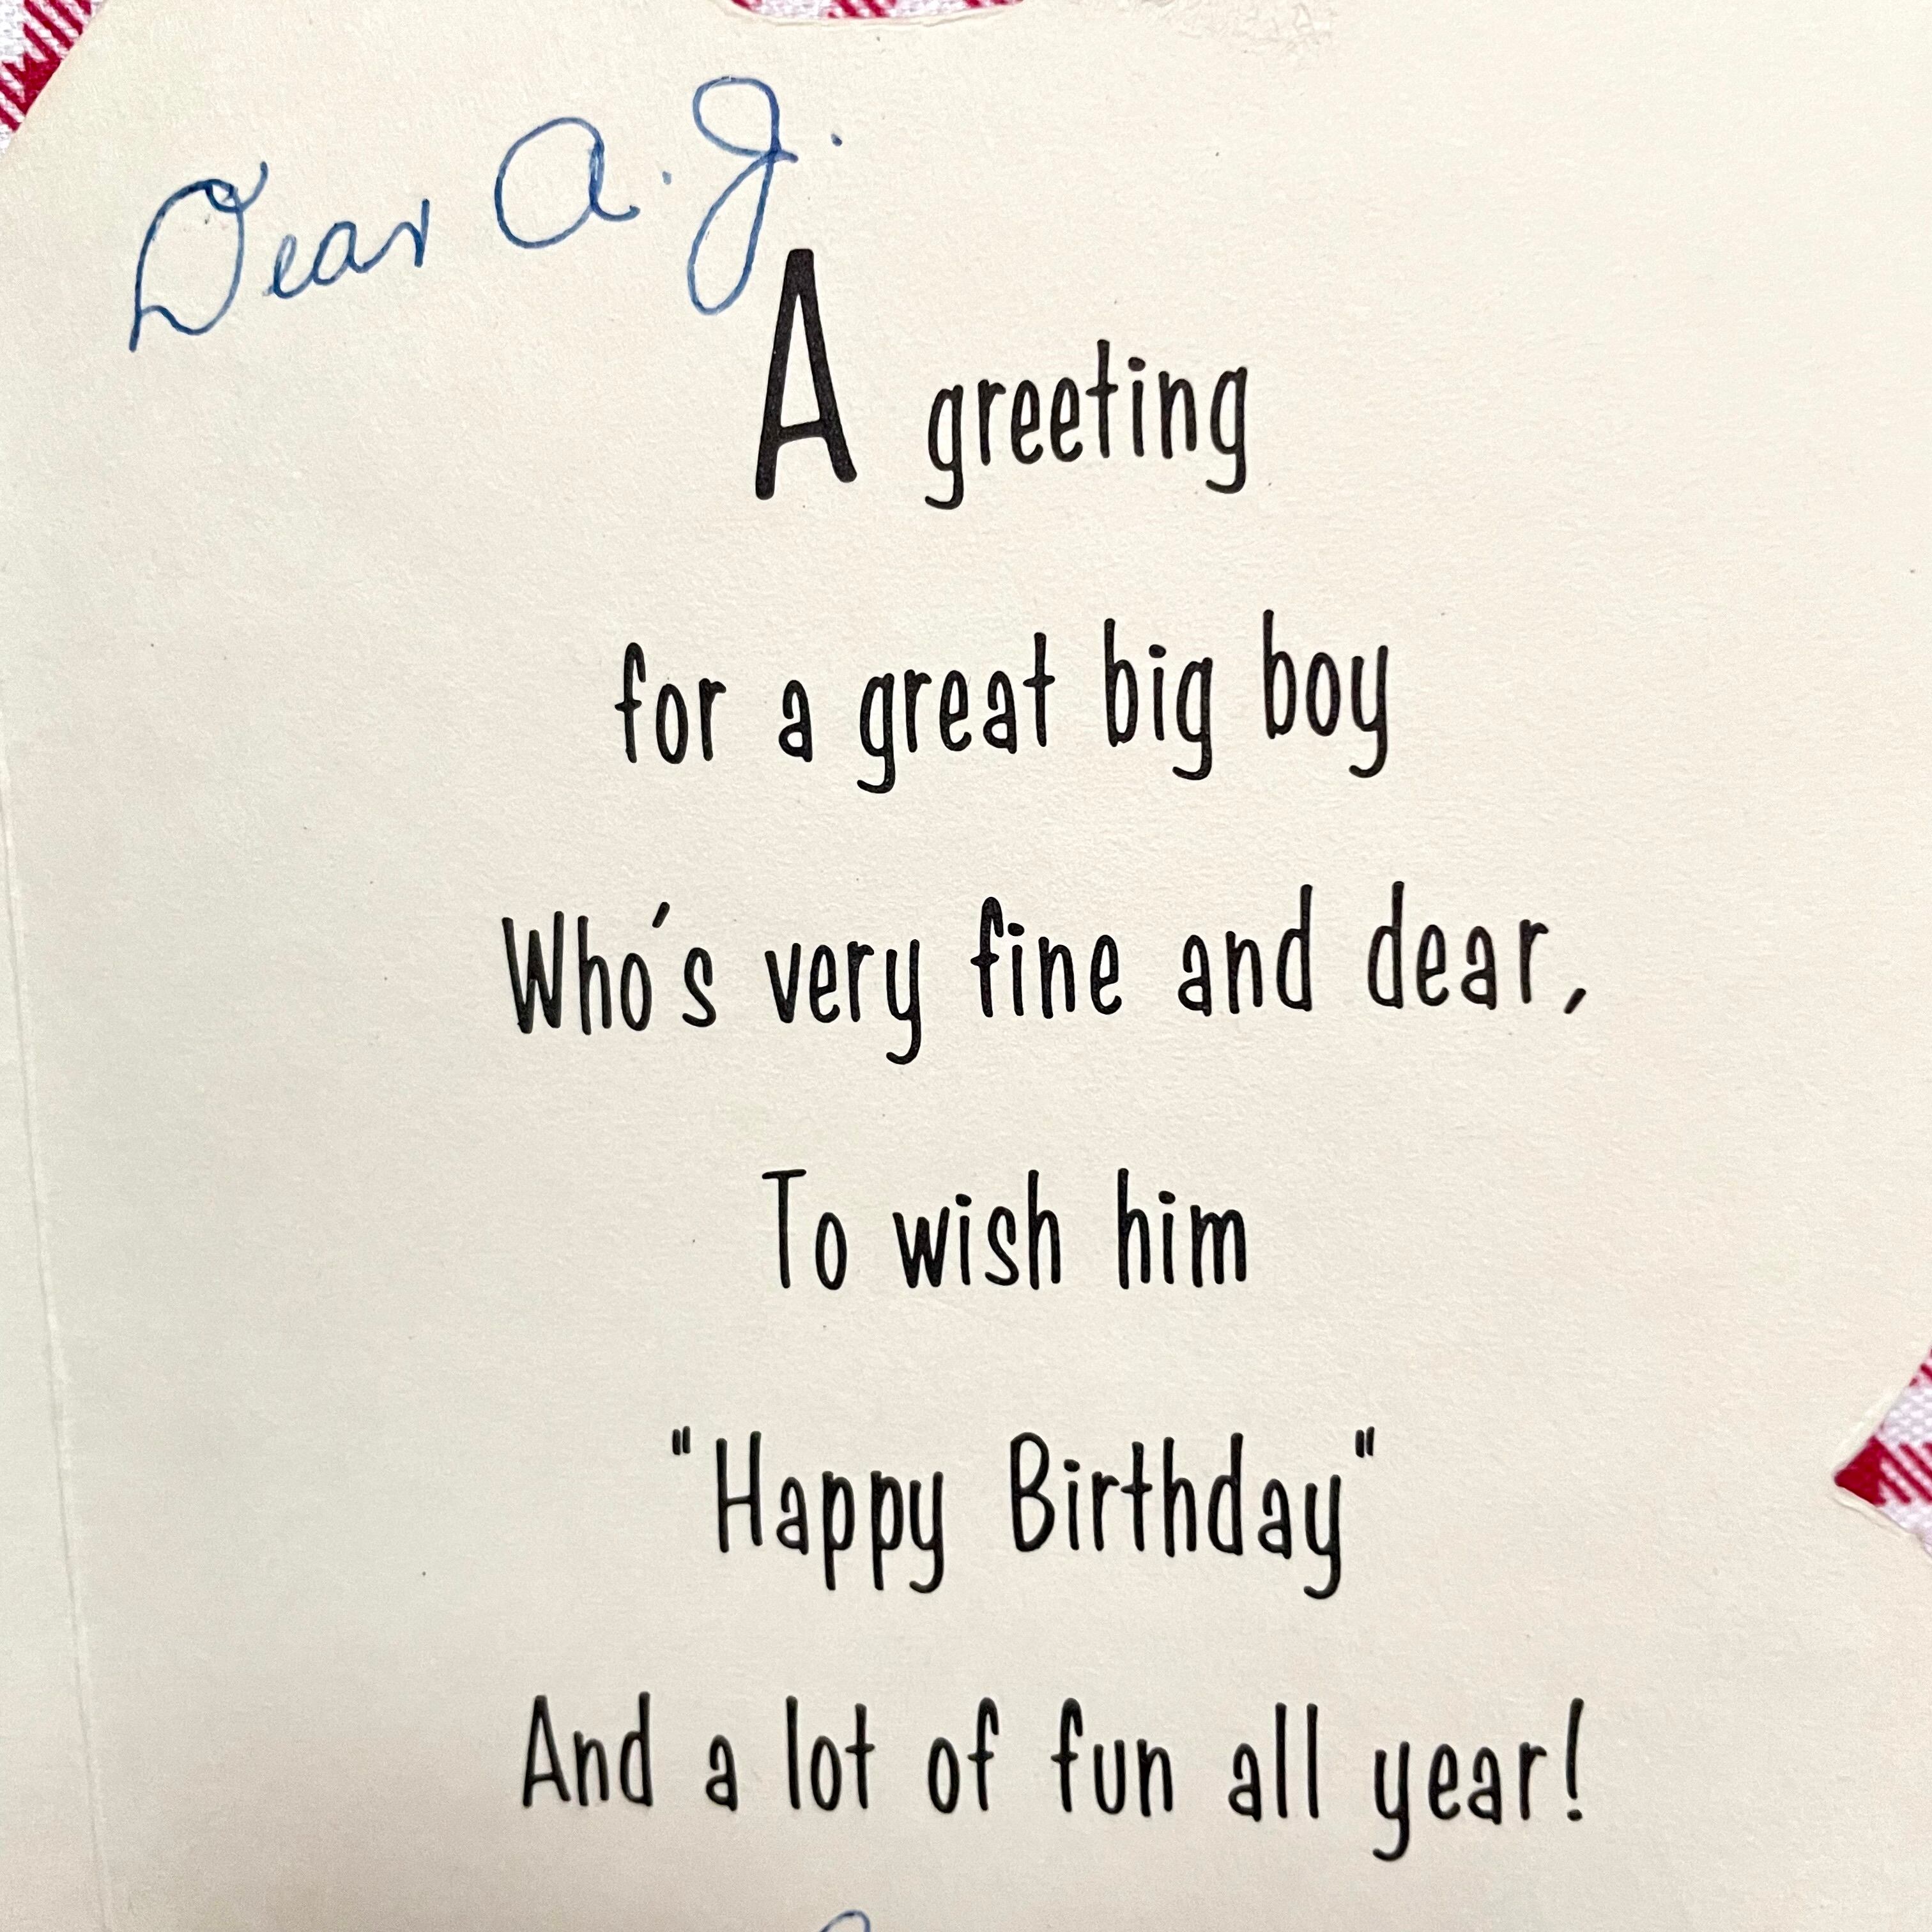 Dear A. J.
A greeting
for a great big boy
Who's very fine and dear,
To wish him
"Happy Birthday"
And a lot of fun all year!